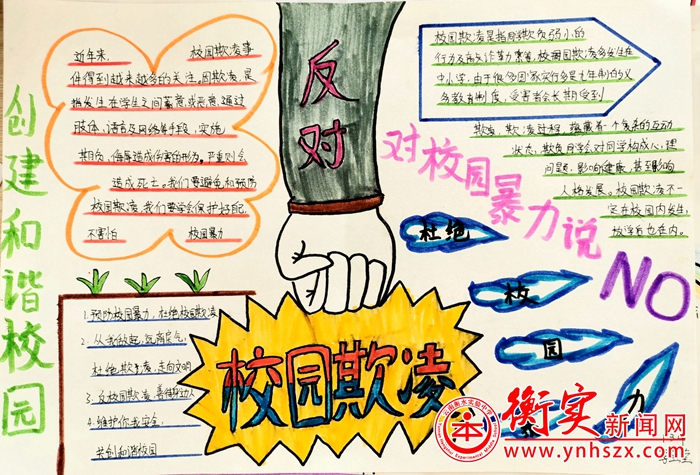 创建和谐校园
近年来, 校园欺凌事
件得到越来越多的关注。园欺凌,是
指发生在学生之间蓄意或恶意,通过
肢体,语言及网络等手段,实施
期负,侮辱造成伤害的行为。严重则会
造成死亡。我们要避免和预防
校园欺凌,我们要学会保护好自己,
不害怕 校园暴力
反对
校园欺凌是指同学欺负弱小的
行为
中小学,由于很多国家实行多是七年制的义
务教育制度,受害者会长期受到
欺凌
状态,欺负同学会对同学构成心理
问题,影响健康,甚至影响
人格发展。校园欺凌不一
定在校园内发生,
放学后也在内。
对校园暴力说
NO
杜绝
校
园
力
1.预防校园暴力,杜绝校园欺凌
2.从我做起,
杜绝欺凌,走向文明
3.反校园欺凌,善待身边人
4.维护你我安全,
共创和谐校园
校园欺凌
衡实新闻网
www.ynhszx.com